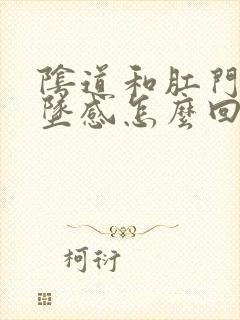 陰道和肛門
墜感怎麼回
柯衍